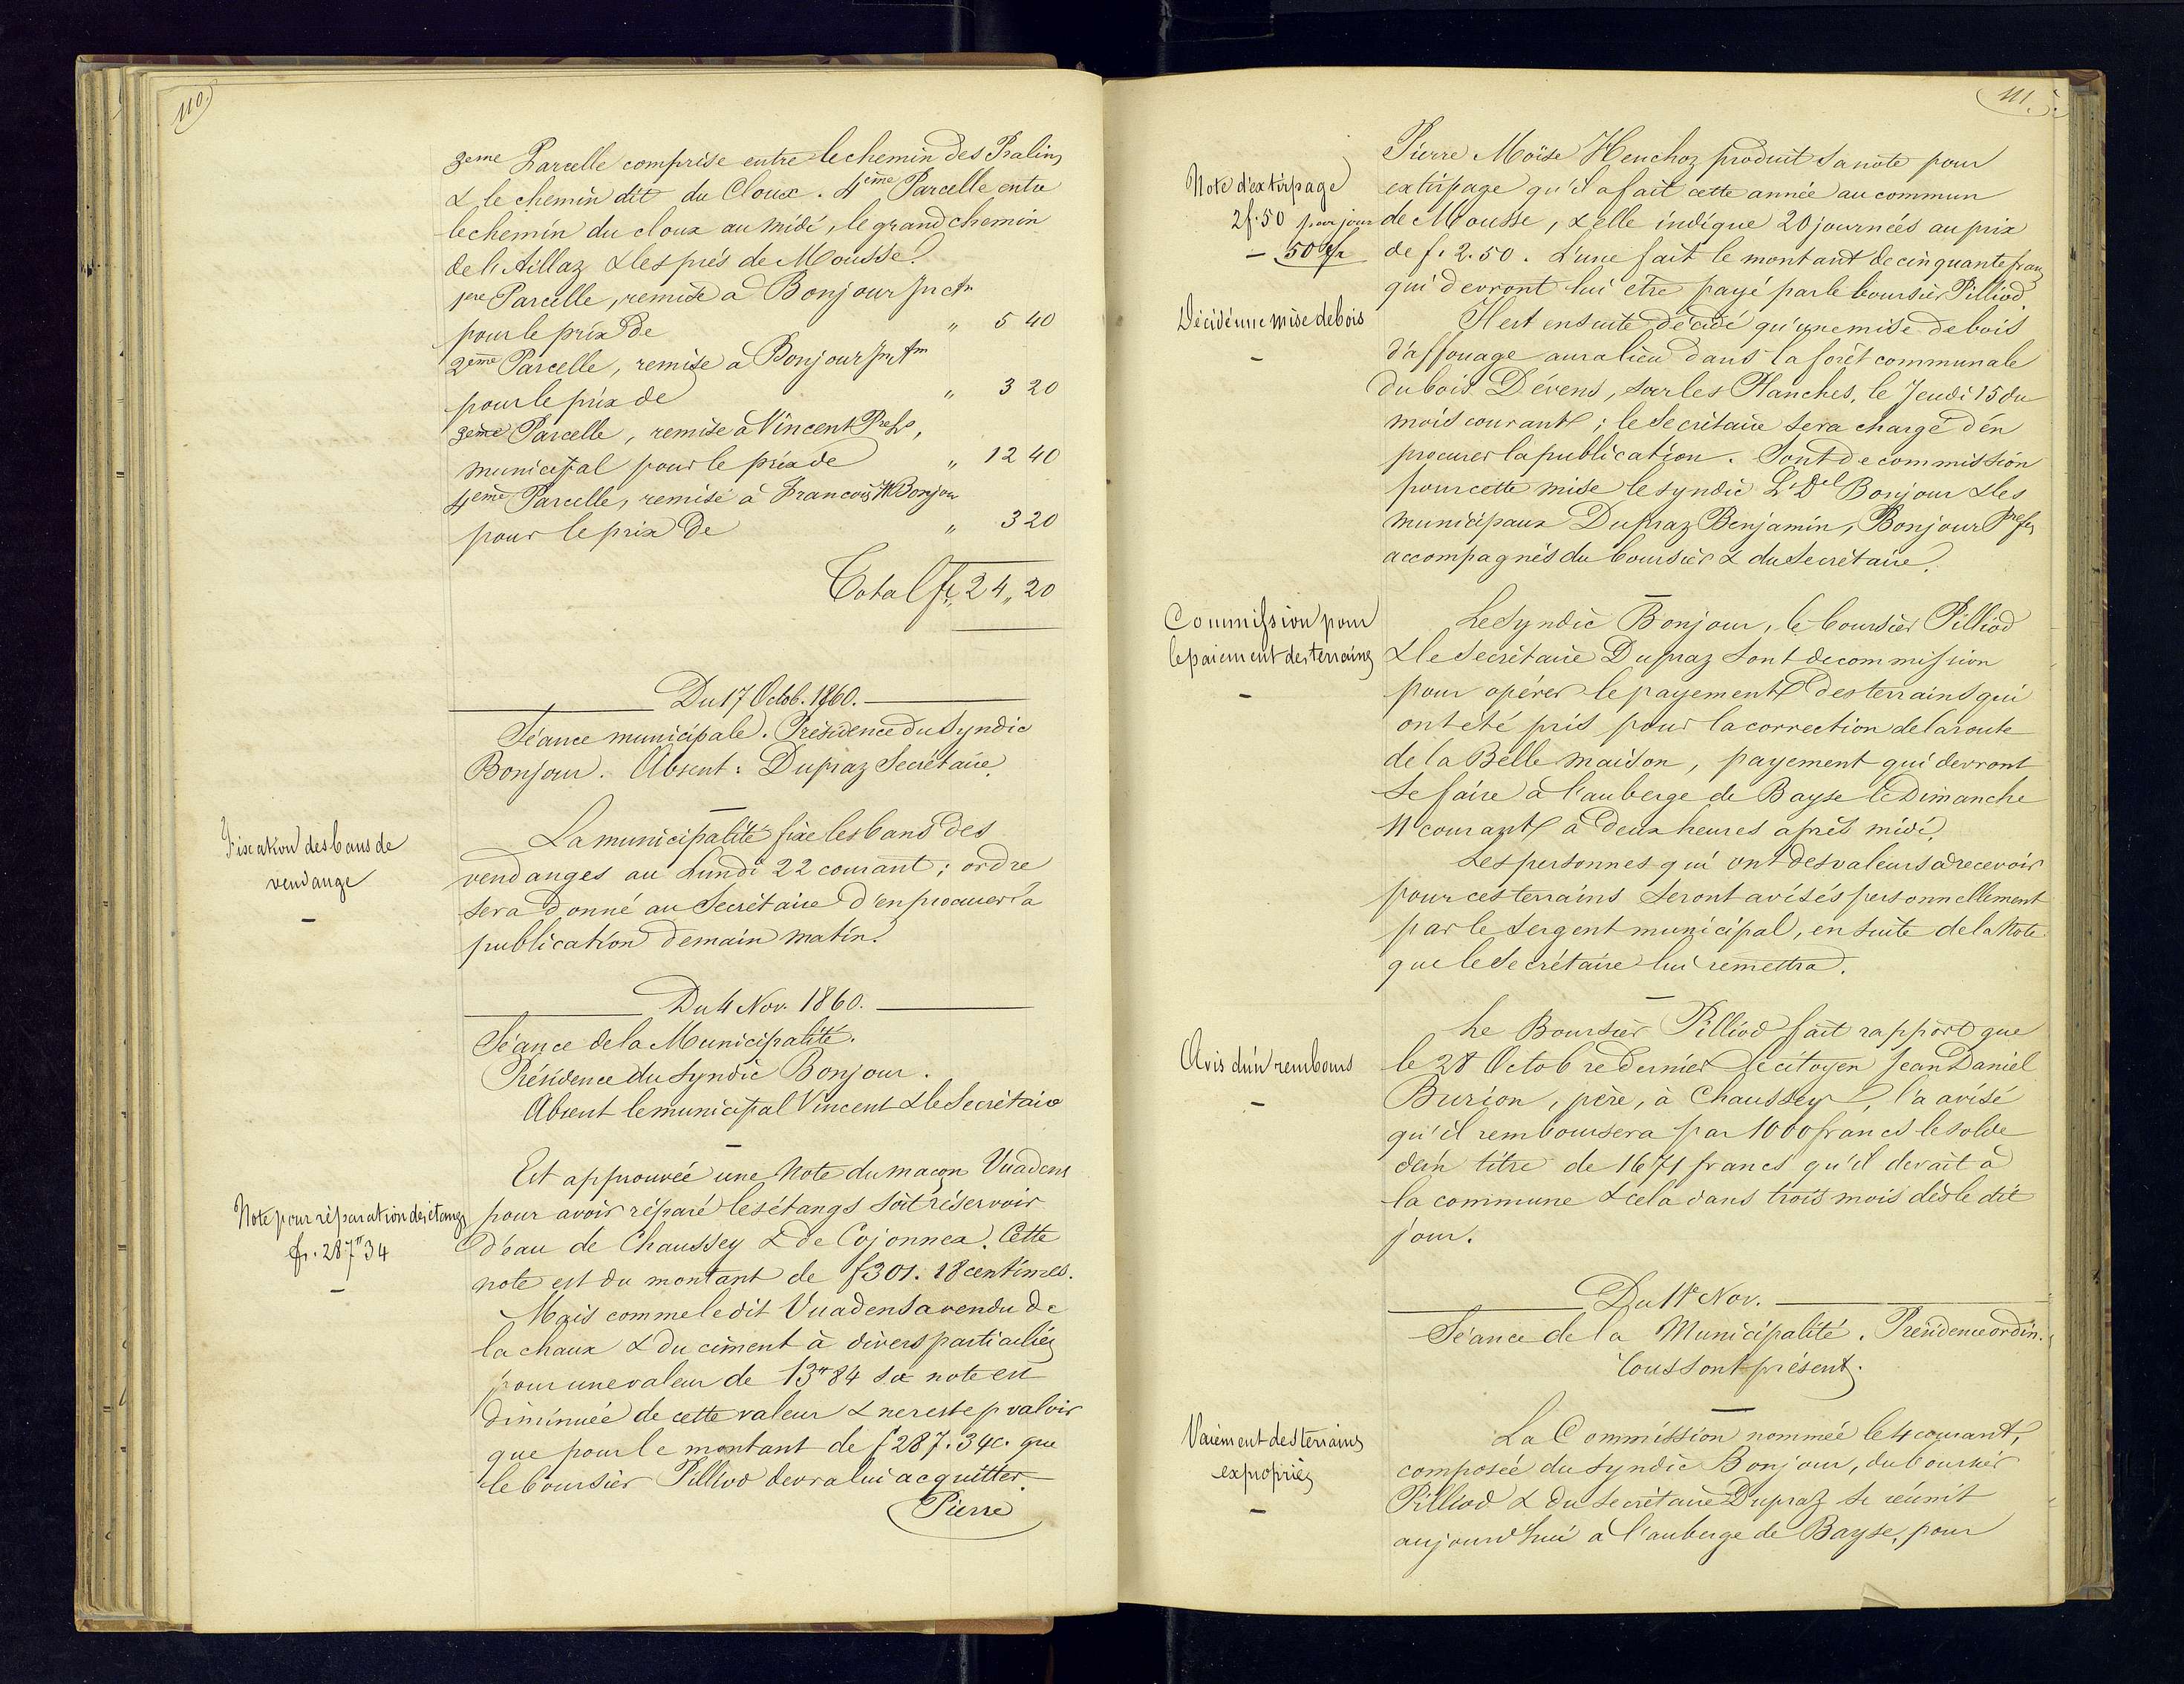 110.
3eme Parcelle comprise entre le chemin des Pralins
& le chemin dit du Cloux. 4eme Parcelle entre
le chemin du cloux au midi, le grand chemin
de l'Aillaz & les prés de Mousse.
1ere Parcelle, remise à Bonjour
pour le prix de " 5 40
2ème Parcelle, remise à Bonjour
pour le prix de " 3 20
3ème Parcelle, remise à Vincent
municipal pour le prix de " 12 40
4ème Parcelle, remise à François Bonjour
pour le prix de " 3 20
Total fr. 24,, 20
Du 17 Octob. 1860.
Séance municipale. Présidence du Syndic
Bonjour. Absent: Dupraz Secrétaire.
Fixcation des bans de
vendange
La municipalité fixe les bans des
vendanges au Lundi 22 courant; ordre
sera donné au Secrétaire d'en procurer la
publication demain matin.
Du 4 Nov. 1860.
Séance de la Municipalité.
Présidence du Syndic Bonjour.
Absent le municipal Vincent & le Secrétaire
Note pour réparation des étangs
fr. 287" 34
Est approuvée une Note du maçon Vuadens
pour avoir réparé les étangs soit réservoir
d'eau de Chaussey & de Cojonnex. Cette
note est du montant de f 301. 18 centimes.
Mais comme le dit Vuadens a vendu de
la chaux & du ciment à divers particuliers
pour une valeur de 13" 84 sa note est
diminuée de cette valeur & ne reste p valoir
que pour le montant de f 287. 34c. que
le boursier Pilliod devra lui acquitter.
Pierre
111.
Note d'extirpage
2f. 50 par jour
50 fr
Pierre Moïse Henchoz produit sa note pour
extirpage qu'il a fait cette année au commun
de Mousse, & elle indique 20 journées au prix
de f. 2.50. L'une fait le montant de cinquante francs
qui devront lui etre payé par le boursier Pilliod.
Décidé une mise de bois
Il est ensuite décidé qu'une mise de bois
d'affouage aura lieu dans la forêt communale
du bois Dévens, sur les Planches, le Jeudi 15 du
mois courant; le Secrétaire sera chargé d'en
procurer la publication. Sont de commission
pour cette mise le syndic Ls Del Bonjour & les
municipaux Dupraz Benjamin, Bonjour
accompagnés du boursier & du Secrétaire.
Commission pour
le paiement des terrains
Le Syndic Bonjour, le boursier Pilliod
& le Secrétaire Dupraz sont de commission
pour opérer le payement des terrains qui
ont été pris pour la correction de la route
de la Belle maison, payement qui devront
se faire à l'auberge de Bayse le Dimanche
11 courant à deux heures après midi.
Les personnes qui ont des valeurs à recevoir
pour ces terrains seront avisés personnellement
par le sergent municipal, en suite de la Note
que le Secrétaire lui remettra.
Avis d'un rembours
Le Boursier Pilliod fait rapport que
le 28 Octobre dernier le citoyen Jean Daniel
Burion, père, à Chaussey, l'a avisé
qu'il remboursera par 1000 francs le solde
d'un titre de 1671 francs qu'il devait à
la commune & cela dans trois mois dès le dit
jour.
Du 11e Nov.
Séance de la Municipalité. Présidence ordin.
Tous sont présent.
Paiement des terrains
expropriés
La Commission nommée le 4 courant,
composée du Syndic Bonjour, du boursier
Pilliod & du Secrétaire Dupraz se réunit
aujourd'hui à l'auberge de Bayse, pour